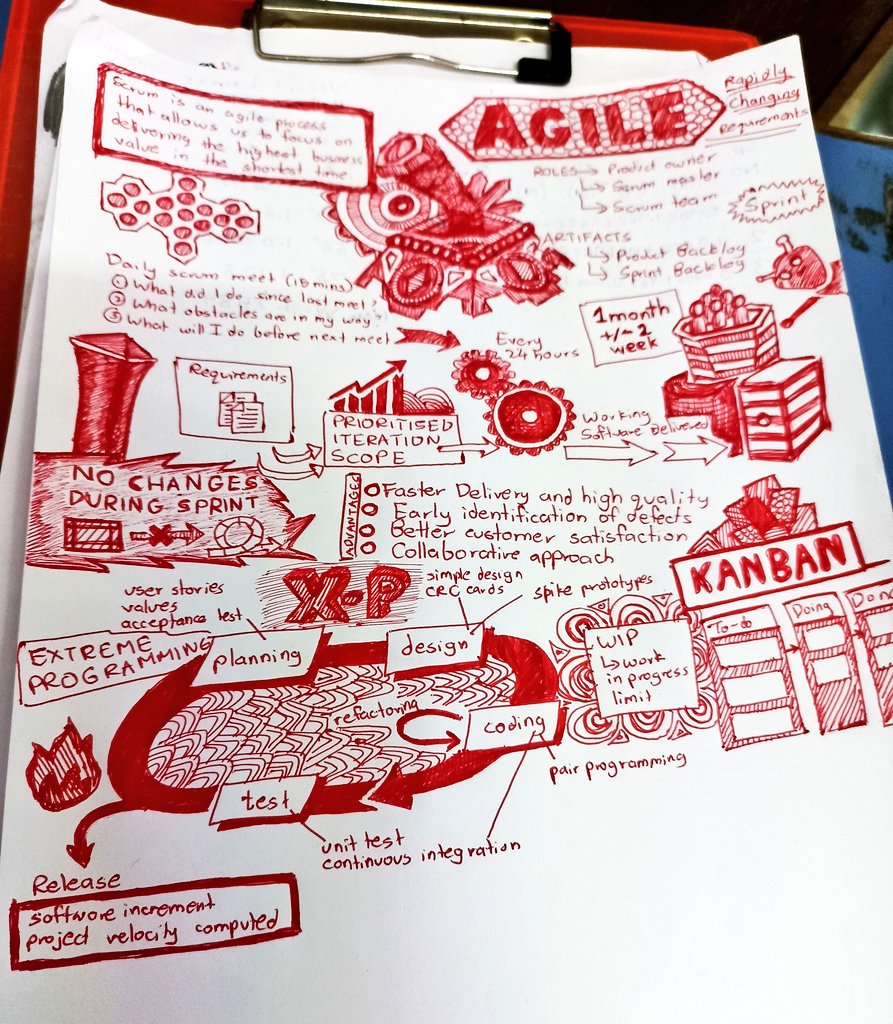 Scrum is an agile process
that allows us to focus on
delivering the highest business
value in the shortest time.
AGILE
Rapidly
Changing
requirements
ROLES → Product owner
↳ Scrum master
↳ Scrum team
Sprint
ARTIFACTS
↳ Product Backlog
↳ Sprint Backlog
Daily scrum meet (15 mins)
① What did I do since last meet?
② What obstacles are in my way?
③ What will I do before next meet
Every
24 hours
1 month
+/- 2
week
Requirements
PRIORITISED
ITERATION
SCOPE
Working
Software Delivered
NO CHANGES
DURING SPRINT
ADVANTAGES
Faster Delivery and high quality
Early identification of defects
Better customer satisfaction
Collaborative approach
KANBAN
To-do
Doing
Don
WIP
↳ work
in progress
limit
X-P
EXTREME
PROGRAMMING
user stories
values
acceptance test
planning
simple design
CRC cards
spike prototypes
design
refactoring
coding
pair programming
test
unit test
continuous integration
Release
software increment
project velocity computed